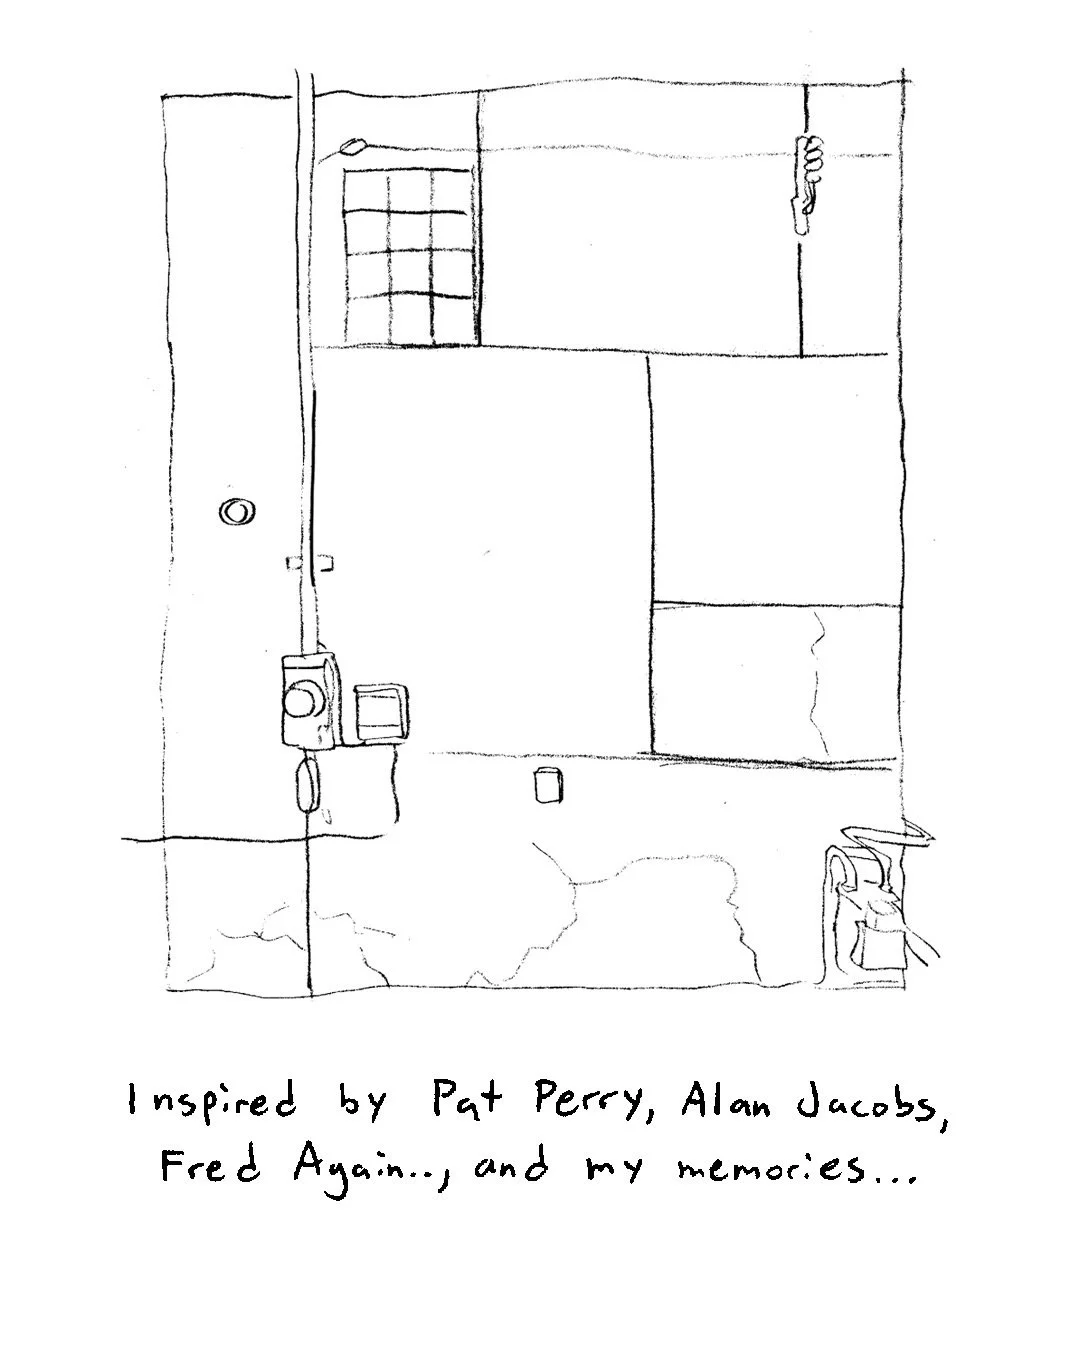 Inspired by Pat Perry, Alan Jacobs,
Fred Again.., and my memories...